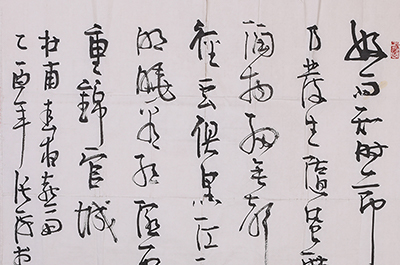 好雨知時節
乃發生隨風潛
潤物細無聲
徑雲俱黑江
明曉看紅濕
重錦官城
杜甫春夜喜雨
乙酉年